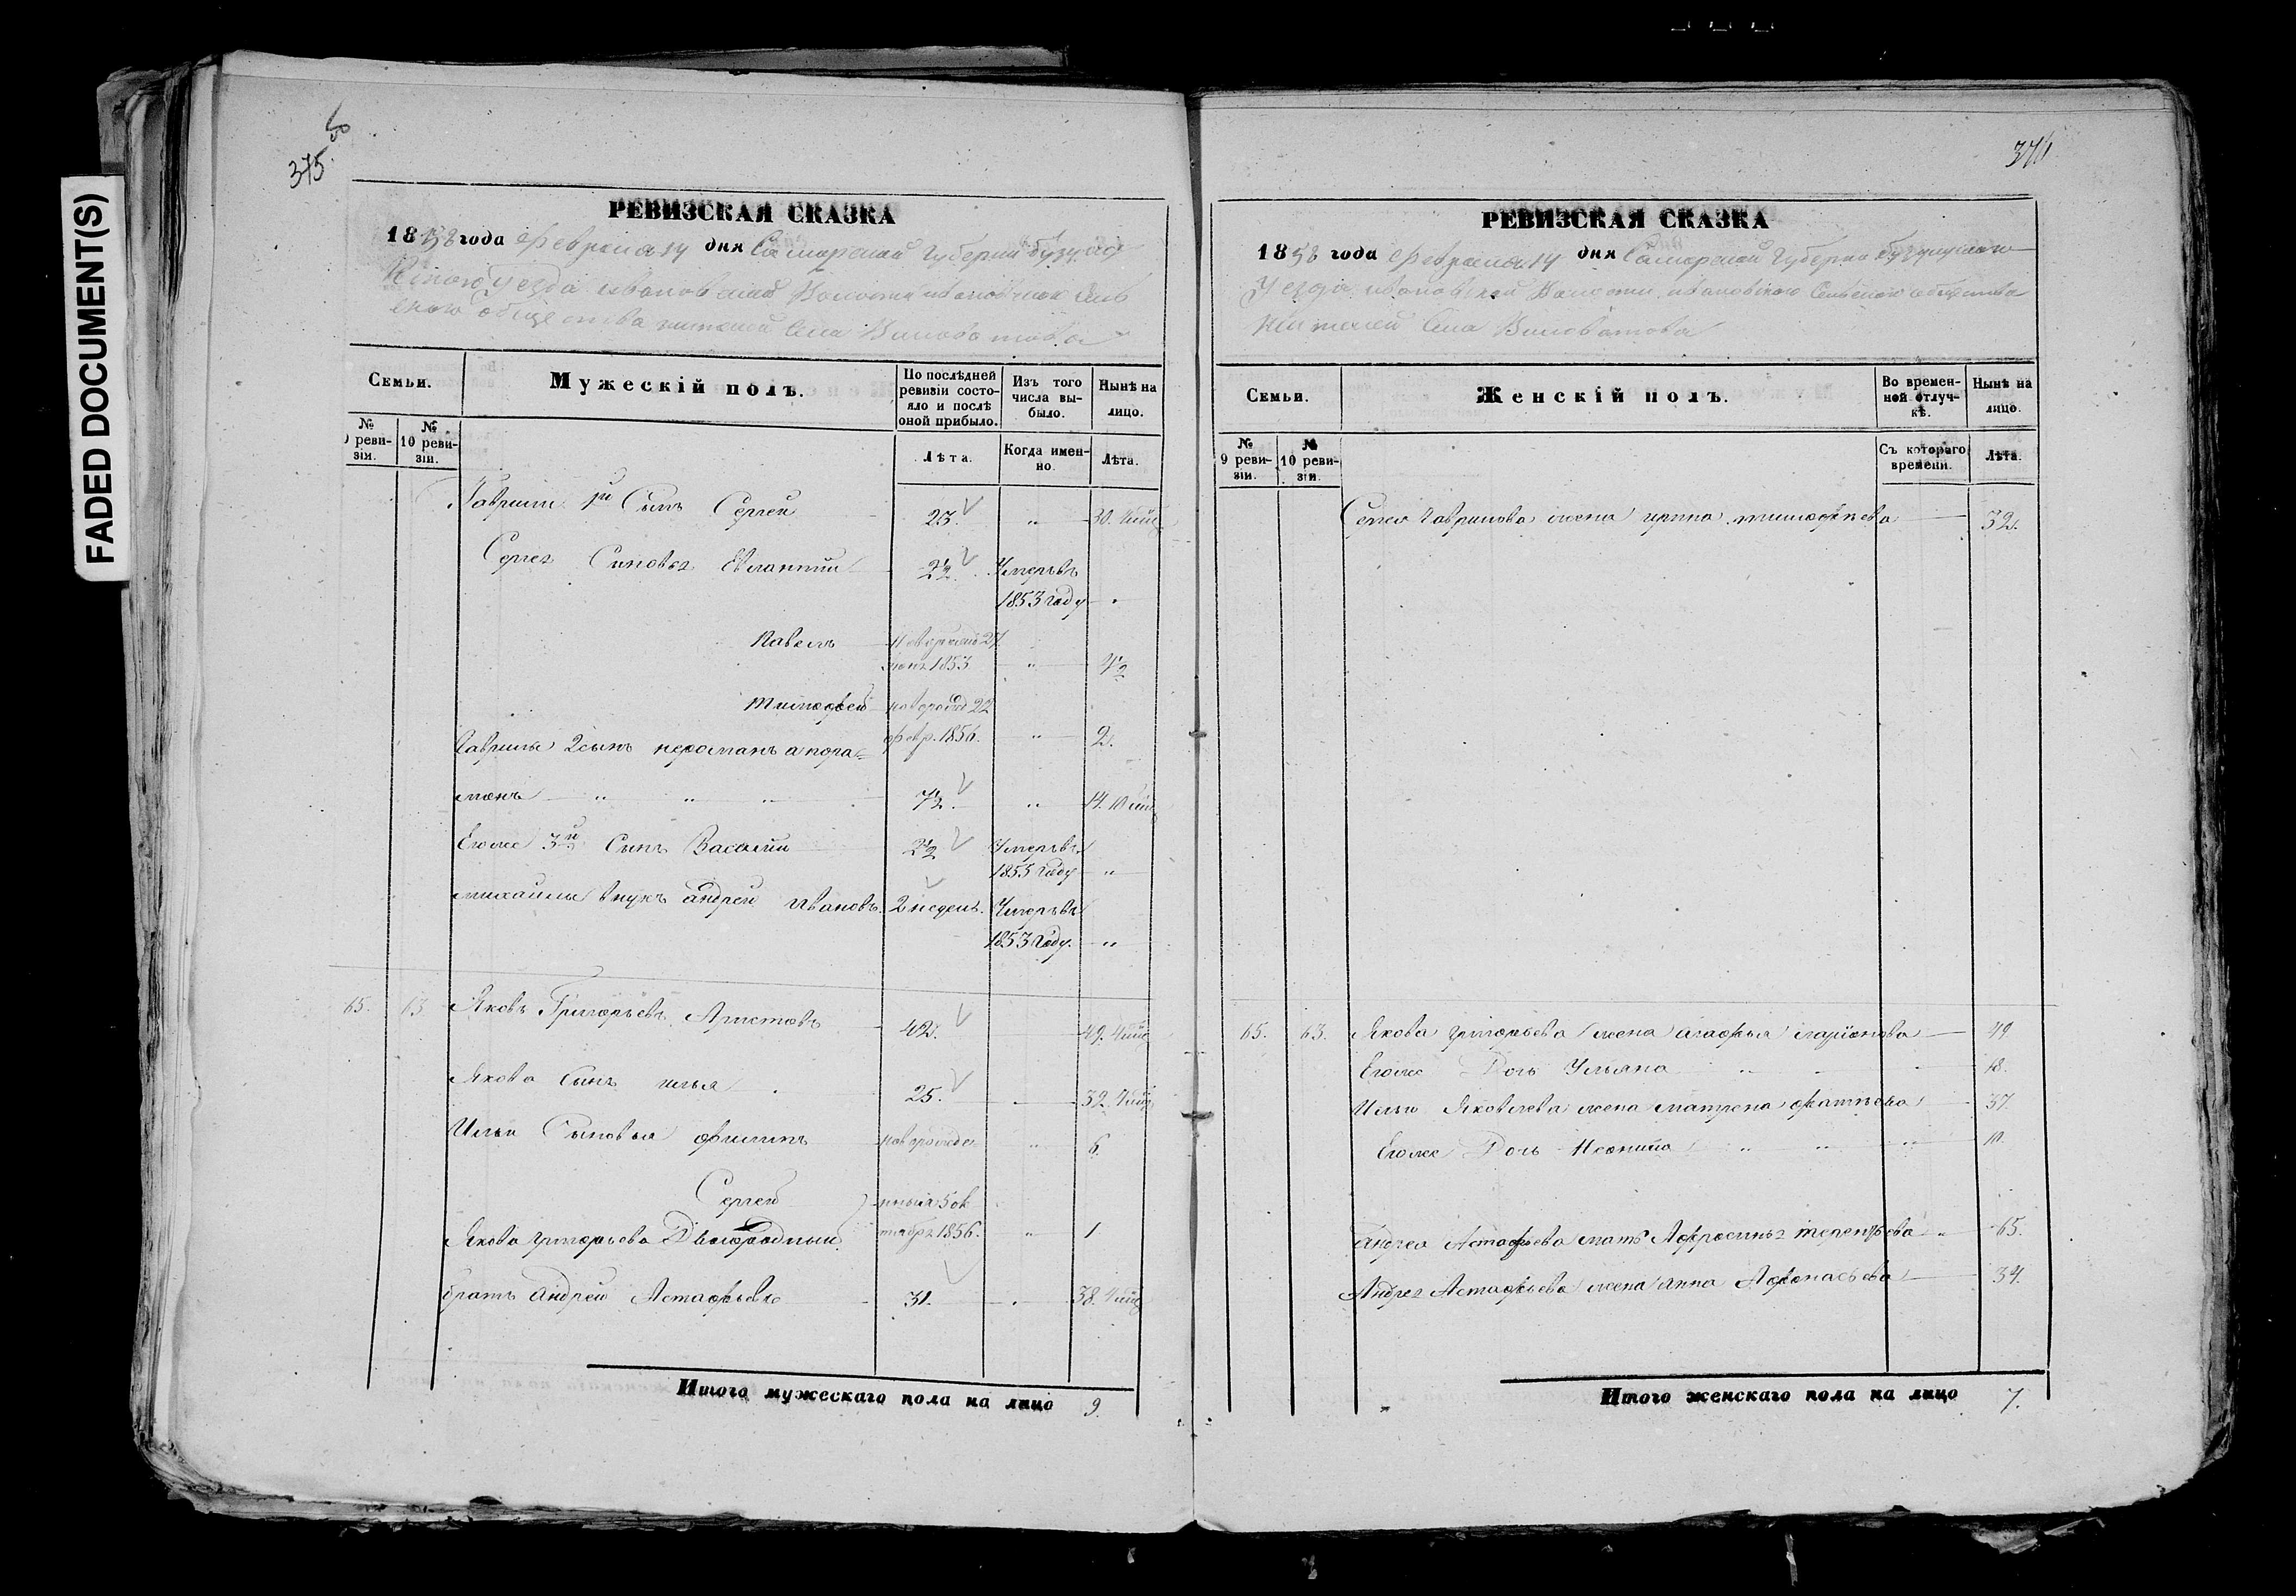 FADED DOCUMENT(S)
375.
РЕВИЗСКАЯ СКАЗКА
1858 года Февраля 14 дня Самарской Губернии Бузулу
кского уезда ивановской Волости ивановского Сель
ского общества жителей Села Виловатова
Семьи.
Мужескій полъ.
По послѣдней ревизіи состояло и послѣ оной прибыло.
Изъ того числа выбыло.
Нынѣ на лицо.
№ 9 ревизіи.
№ 10 ревизіи.
Лѣта.
Когда именно.
Лѣта.
Гаврилы 1й Сынъ Сергей 23. " 30. 4 мѣс
Сергея Сыновья Евлампий 2½. Умеръ въ
1853 году "
Павелъ новорожд 27
1853 " 4½
Тимофей новорожд 22
февр. 1856. " 2.
Гаврилы 2 сынъ
" " " 7½. " 14. 10 мѣс
Егоже 3й Сынъ Василий 2½ Умеръ въ
1855 году "
михайлы внукъ андрей Ивановъ. 2 недели. Умеръ въ
1853 году. "
65. 63 Яковъ Григорьевъ Аристовъ 42. 49. 4 мѣс
Якова Сынъ илья 25. " 32. 4 мѣс
Ильи Сыновья филипъ новорожден " 6.
Сергей ный 5 ок
Якова григорьева Двоюродный тября 1856. " 1
братъ андрей Астафьевъ 31. " 38. 4 мѣс
Итого мужескаго пола на лицо 9.
376
РЕВИЗСКАЯ СКАЗКА
1858 года февраля 14 дня Самарской Губернии бузулукского
Уезда ивановской Волости ивановского Сельского общества
жителей Села Виловатова
Семьи.
Женскій полъ.
Во временной отлучкѣ.
Нынѣ на лицо.
№ 9 ревизіи.
№ 10 ревизіи.
Съ котораго времени.
Лѣта.
Сергея Гаврилова жена ирина тимофѣева 32.
65. 63. Якова григорьева жена агафья ларионова 49
Егоже Дочь Ульяна " " " 18.
Ильи Яковлева жена матрена 37
Егоже Дочь " " " 10.
андрея Астафьева мать Афросинья терентьева " 65.
Андрея Астафьева жена анна Афонасьева 34.
Итого женскаго пола на лицо 7.